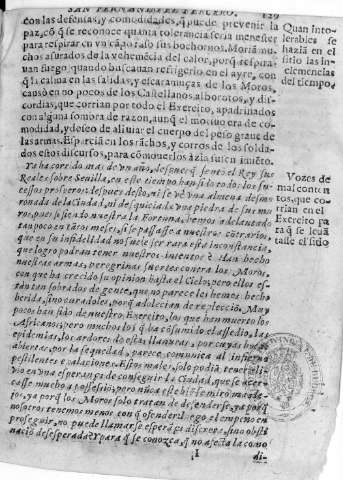 SAN FERNANDO EL TERCERO. 129
con las defensas, y comodidades, q̃ puede prevenir la
paz, cõ q̃ se reconoce quanta tolerancia seria menester
para respirar en vn vapor aso sus bochornos. Moriã mu
chos asurados de la vehemẽcia del calor, porq̃ respira
van fuego quando buscauan refrigerio en el ayre, con
que la calma en las salidas, y escaramuças de los Moros,
causò en no pocos de los Castellanos alborotos, y dis-
cordias, que corrian por todo el Exercito, apadrinados
con alguna sombra de razon, aunq̃ el motiuo era de co-
modidad, y deseo de aliuiar el cuerpo del peso graue de
las armas. Esparcia en los rãchos, y corros de los solda-
dos estos discursos, para cõmoverlos àzia su sentimiẽto.
Ya ha corrido mas de vn año, despues q̃ sentò el Rey sus
Reales sobre Sevilla, en este tiempo han sido todos los su-
cessos prosperos; despues desto, ni se vè vna almena desmo
ronada de la Ciudad, ni desquiciada vna piedra de sus mu
ros, pues si ẽdo nuestra la Fortuna, hemos adelantado
tan poco en tãtos meses, si se passasse a nuestros cõtrarios,
que en su infidelidad no suele ser rara esta inconstancia,
que logro podran tener nuestros intentos? Han hecho
nuestras armas, peregrinas suertes contra los Moros,
con que ha crecido su opinion hasta el Cielo, pero ellos es-
tàn tan sobrados de gente, que no parece les hemos hecho
herida, sino curadoles, porq̃ adolecian de replecciõ. Muy
pocos han sido de nuestro Exercito, los que han muerto los
Africanos, pero muchos los q̃ ha cõsumido el assedio, las
epidemias, los ardores de estas llanuras, por cuyas bocas
abiertas, por la sequedad, parece comunica el infierno
pestilentes exalaciones. Estos males, solo podiã tener ali-
vio en vna esperança de conseguir la Ciudad, que se acer-
casse mucho a possessiõ, pero nũca este biẽ se mirò mas re-
to, ya porq̃ los Moros solo tratan de defenderse, ya porq̃
nosotros tenemos menos con q̃ ofenderlos, el empeño en
proseguir, no puede llamarse esperãça discreta, sino obsti
naciõ desesperada. Y para q̃ se conozca, q̃ no afecta la como
¶I di-
Quan into-
lerables se
hazià en el
sitio las in-
clemencias
del tiempo.
Vozes de
mal conten
tos, que co-
rrian en el
Exercito pa
ra q̃ se levã
tasse el sitio